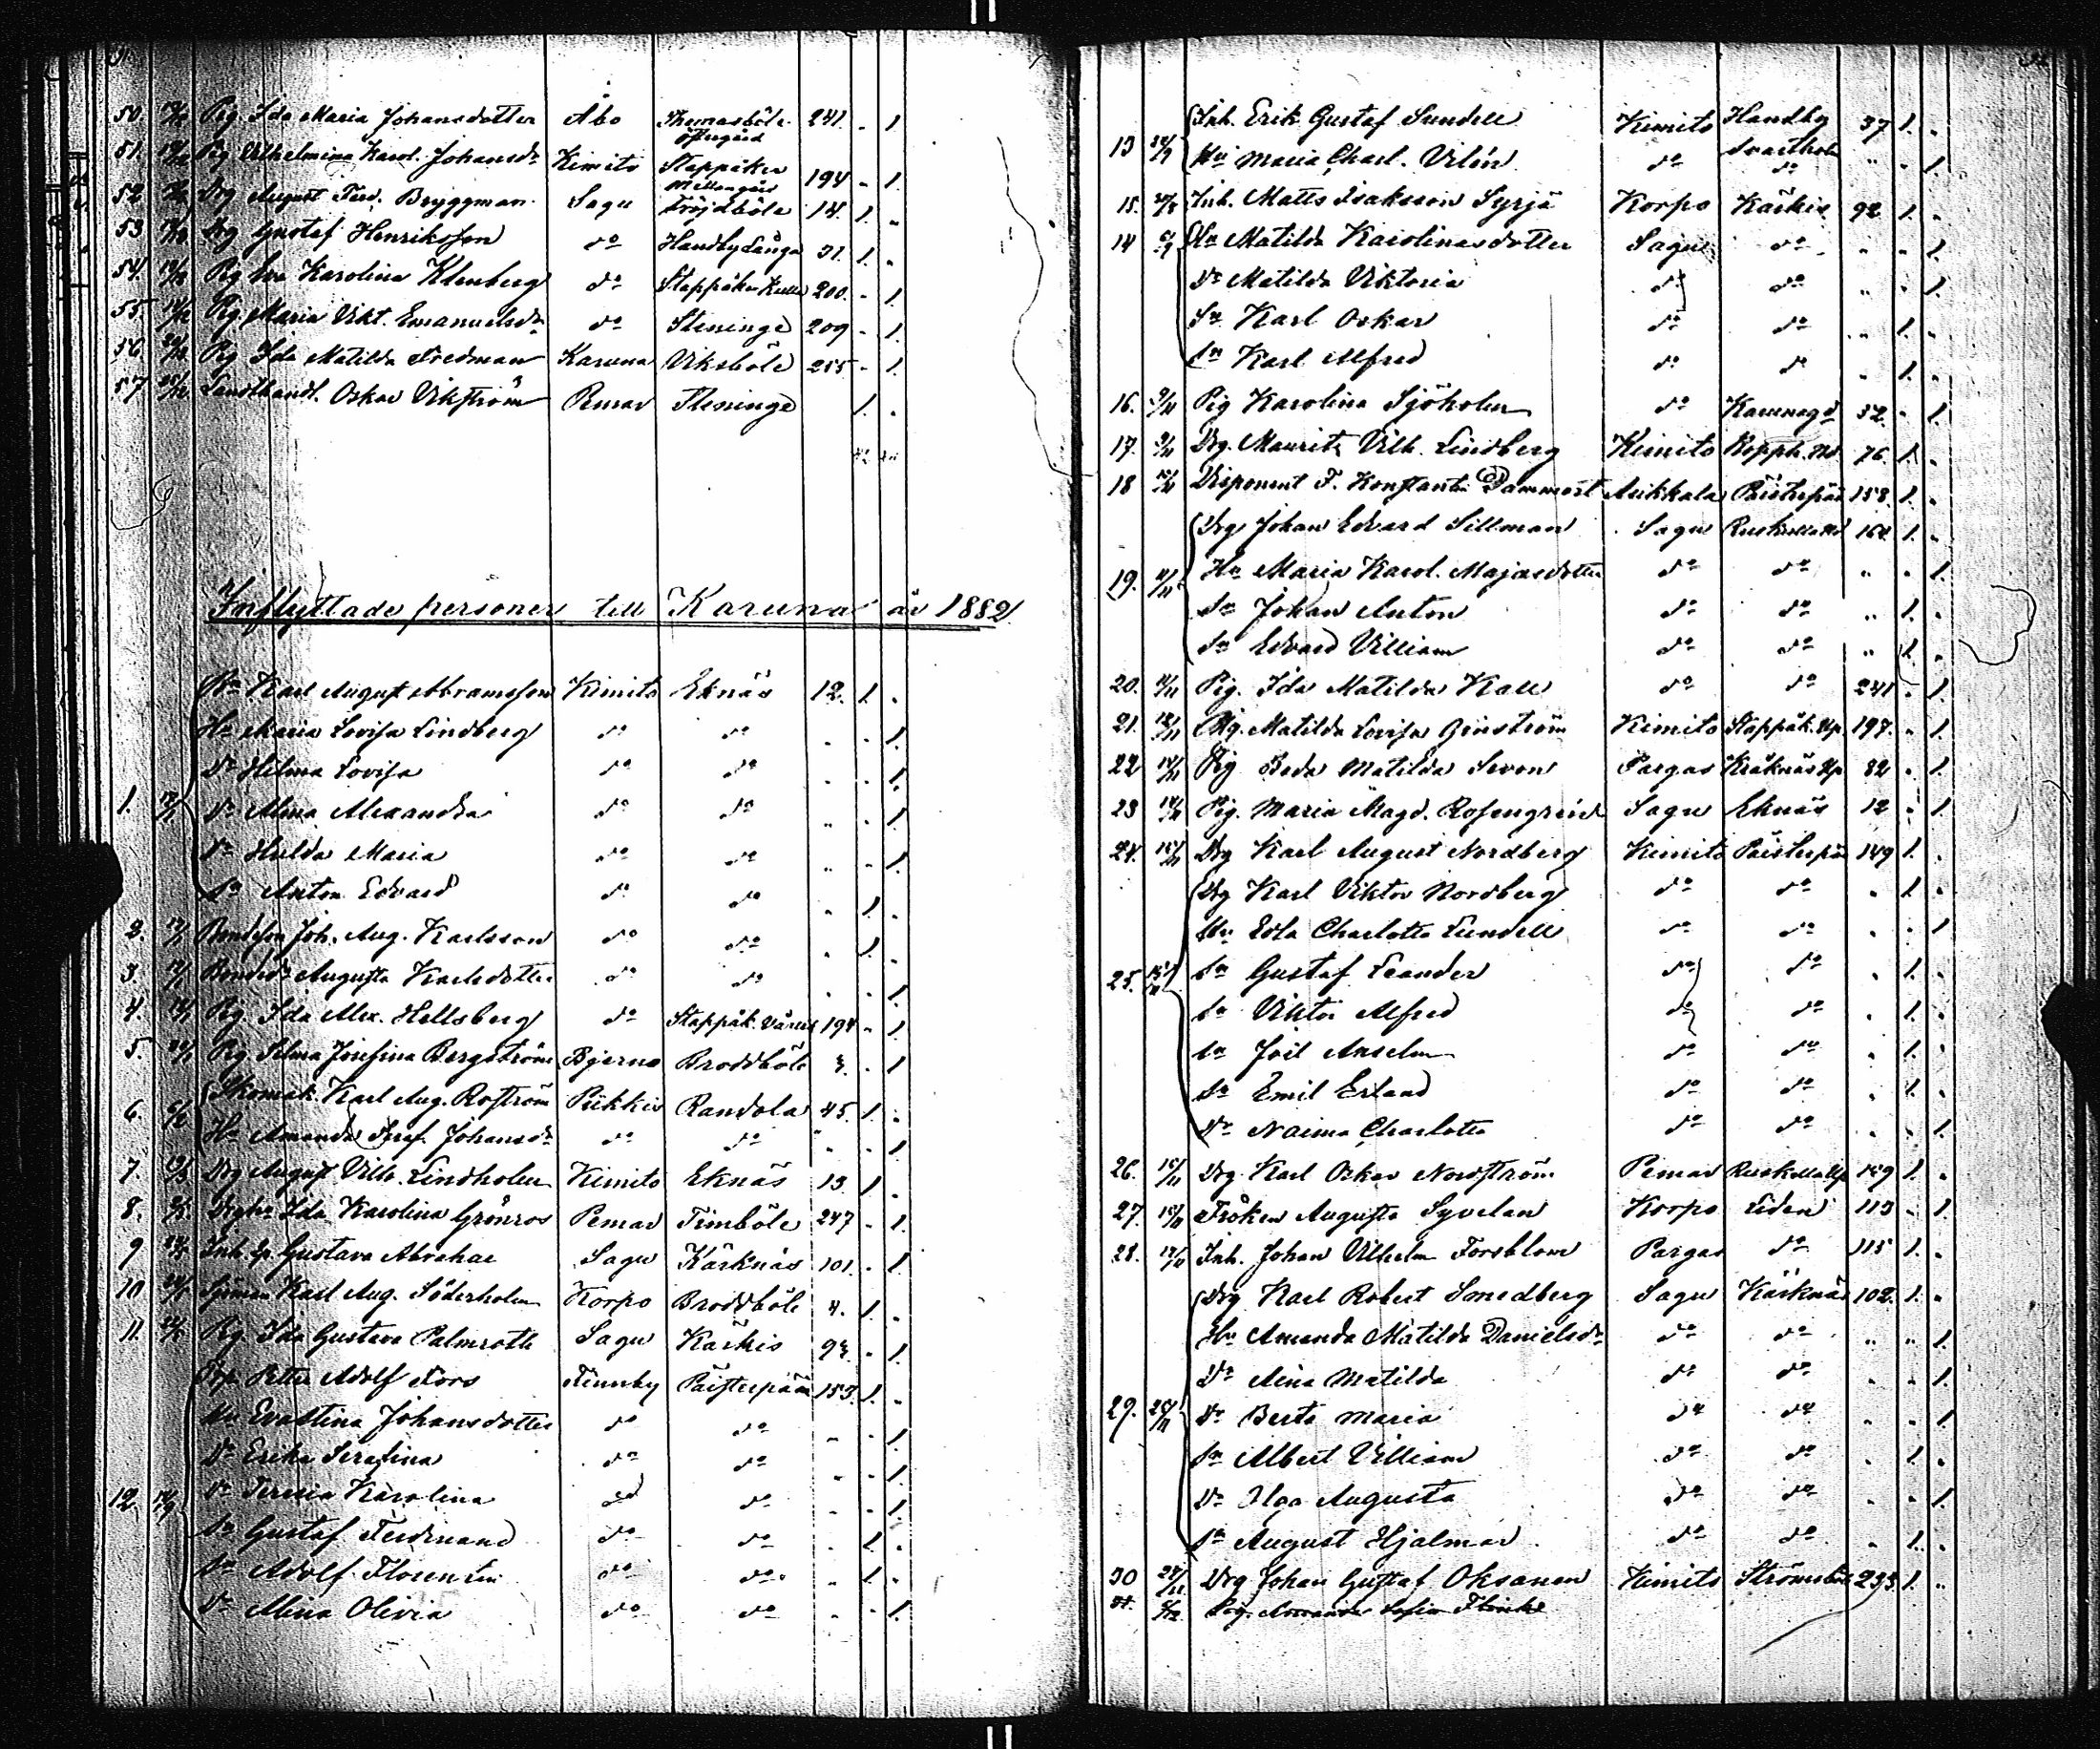 50. Pig. Ida Maria Johansdotter Åbo Thomasböle Öfvergård 241. - 1.
51. Pig Vilhelmina Karol. Johansdr Kimito Stappåker Mellangård 194 - 1.
52. Drg August Ferd. Bryggman Sagu Fröjdböle 14. 1. -
53. Drg Gustaf Henriksson do Handby Långa 31. 1. -
54. Pig Eva Karolina Klenberg do Stappåker Kulla 200. - 1.
55. Pig. Maria Vikt. Emanuelsdr do Steninge 209 - 1.
56. Pig Ida Matilda Fredman Karuna Viksböle 255 - 1.
57 Landthandl. Oskar Vikström Pemar Steninge 1. -
Inflyttade personer till Karuna år 1882
Karl August Abramsson Kimito Eknäs 12. 1. -
Hu Maria Lovisa Lindberg do do - - 1.
Dr Hilma Lovisa do do - - 1.
1. 12/1 Dr Alma Alexandra do do - - 1.
Dr Hulda Maria do do - - 1.
Sn Anton Edvard do do - 1. -
2. Bondeson Joh. Aug. Karlsson do do - 1. -
3. Bonded. Augusta Karlsdotter do do - - 1.
4. Pig. Ida Alex. Hellsberg do Stappåk. 194 - 1.
5. Pig Selma Josefina Bergström Bjerno Broddböle 3. - 1
6. Skomak. Karl Aug. Roström Piikkis Randola 45. 1. -
Hu Amanda Seraf. Johansdr do do " - 1
7. Drg August Vilh. Lindholm Kimito Eknäs 13 1 -
8. Ida Karolina Grönros Pemar Timböle 247 - 1.
9 Inh. Gustava Abrahae Sagu Kärknäs 101. - 1.
10 Sjöman Karl Aug. Söderholm Korpo Broddböle 4. 1. -
11. Pig. Ida Gustava Palmroth Sagu Kärkis 93. - 1.
Torp. Petter Adolf Fors Finnby Päisterpää 153. 1. -
Hu Eva Stina Johansdotter do do - - 1.
Dr Erika Serafina do do - - 1.
12. Dr Teresia Karolina do do - - 1.
Sn Gustaf Ferdinand do do - 1. -
Sn Adolf Florentin do do - 1. -
Dr Alina Olivia do do - - 1.
Inh. Erik Gustaf Sundell Kimito Handby Svartholm 37 1. -
13 Hu Maria Charl. Vilén do do " - 1.
15. Inh. Matts Isaksson Syrjä Korpo Kärkis 92 1. -
14 Hu Matilda Karolinasdotter Sagu do - - 1.
Dr Matilda Viktoria do do " - 1.
Sn Karl Oskar do do " 1. -
Sn Karl Alfred do do - 1. -
16. Pig Karolina Sjöholm do Karunagd 32. - 1.
17. Drg. Maurits Vilh. Lindberg Kimito 76. 1. -
18 Disponent F. Konstantin Dammert Asikkala Päisterpää 158. 1. -
Drg Johan Edvard Sillman Sagu 164. 1. -
19. Hu Maria Karol. Majasdotter do do " - 1.
Sn Johan Anton do do " 1. -
Sn Edvard Villiam do do " 1. -
20. Pig. Ida Matilda Kall do do 241 - 1.
21. Pig. Matilda Lovisa Grinström Kimito Stappåk. 197. - 1.
22 Pig Beda Matilda Sevon Pargas 82 - 1.
23 Pig. Maria Magd. Rosengren Sagu Eknäs 12 - 1.
24. Drg Karl August Nordberg Kimito Päisterpää 149 1. -
Drg Karl Viktor Nordberg do do - 1. -
Hu Eva Charlotta Lundell do do - - 1
25. Sn Gustaf Leander do do - 1. -
Sn Viktor Alfred do do - 1. -
Sn Joël Anselm do do - 1. -
Sn Emil Erland do do - 1. -
Dr Naima Charlotta do do - - 1.
26. Drg. Karl Oskar Nordström Pemar 159 1. -
27. Fröken Augusta Syvelan Korpo Liden 113 - 1.
28. Inh. Johan Vilhelm Forsblom Pargas do 115 1. -
Drg Karl Robert Smedberg Sagu Kärknäs 102. 1. -
Hu Amanda Matilda Danielsdr do do " " 1.
Dr Aina Matilda do do - - 1.
29. Dr Berta Maria do do - - 1
Sn Albert Villiam do do - 1. -
Dr Olga Augusta do do - - 1.
Sn August Hjalmar do do - 1. -
30 Drg Johan Gustaf Oksanen Kimito Strömsböle 233. 1. "
Pig. Amanda Sofia Flinck